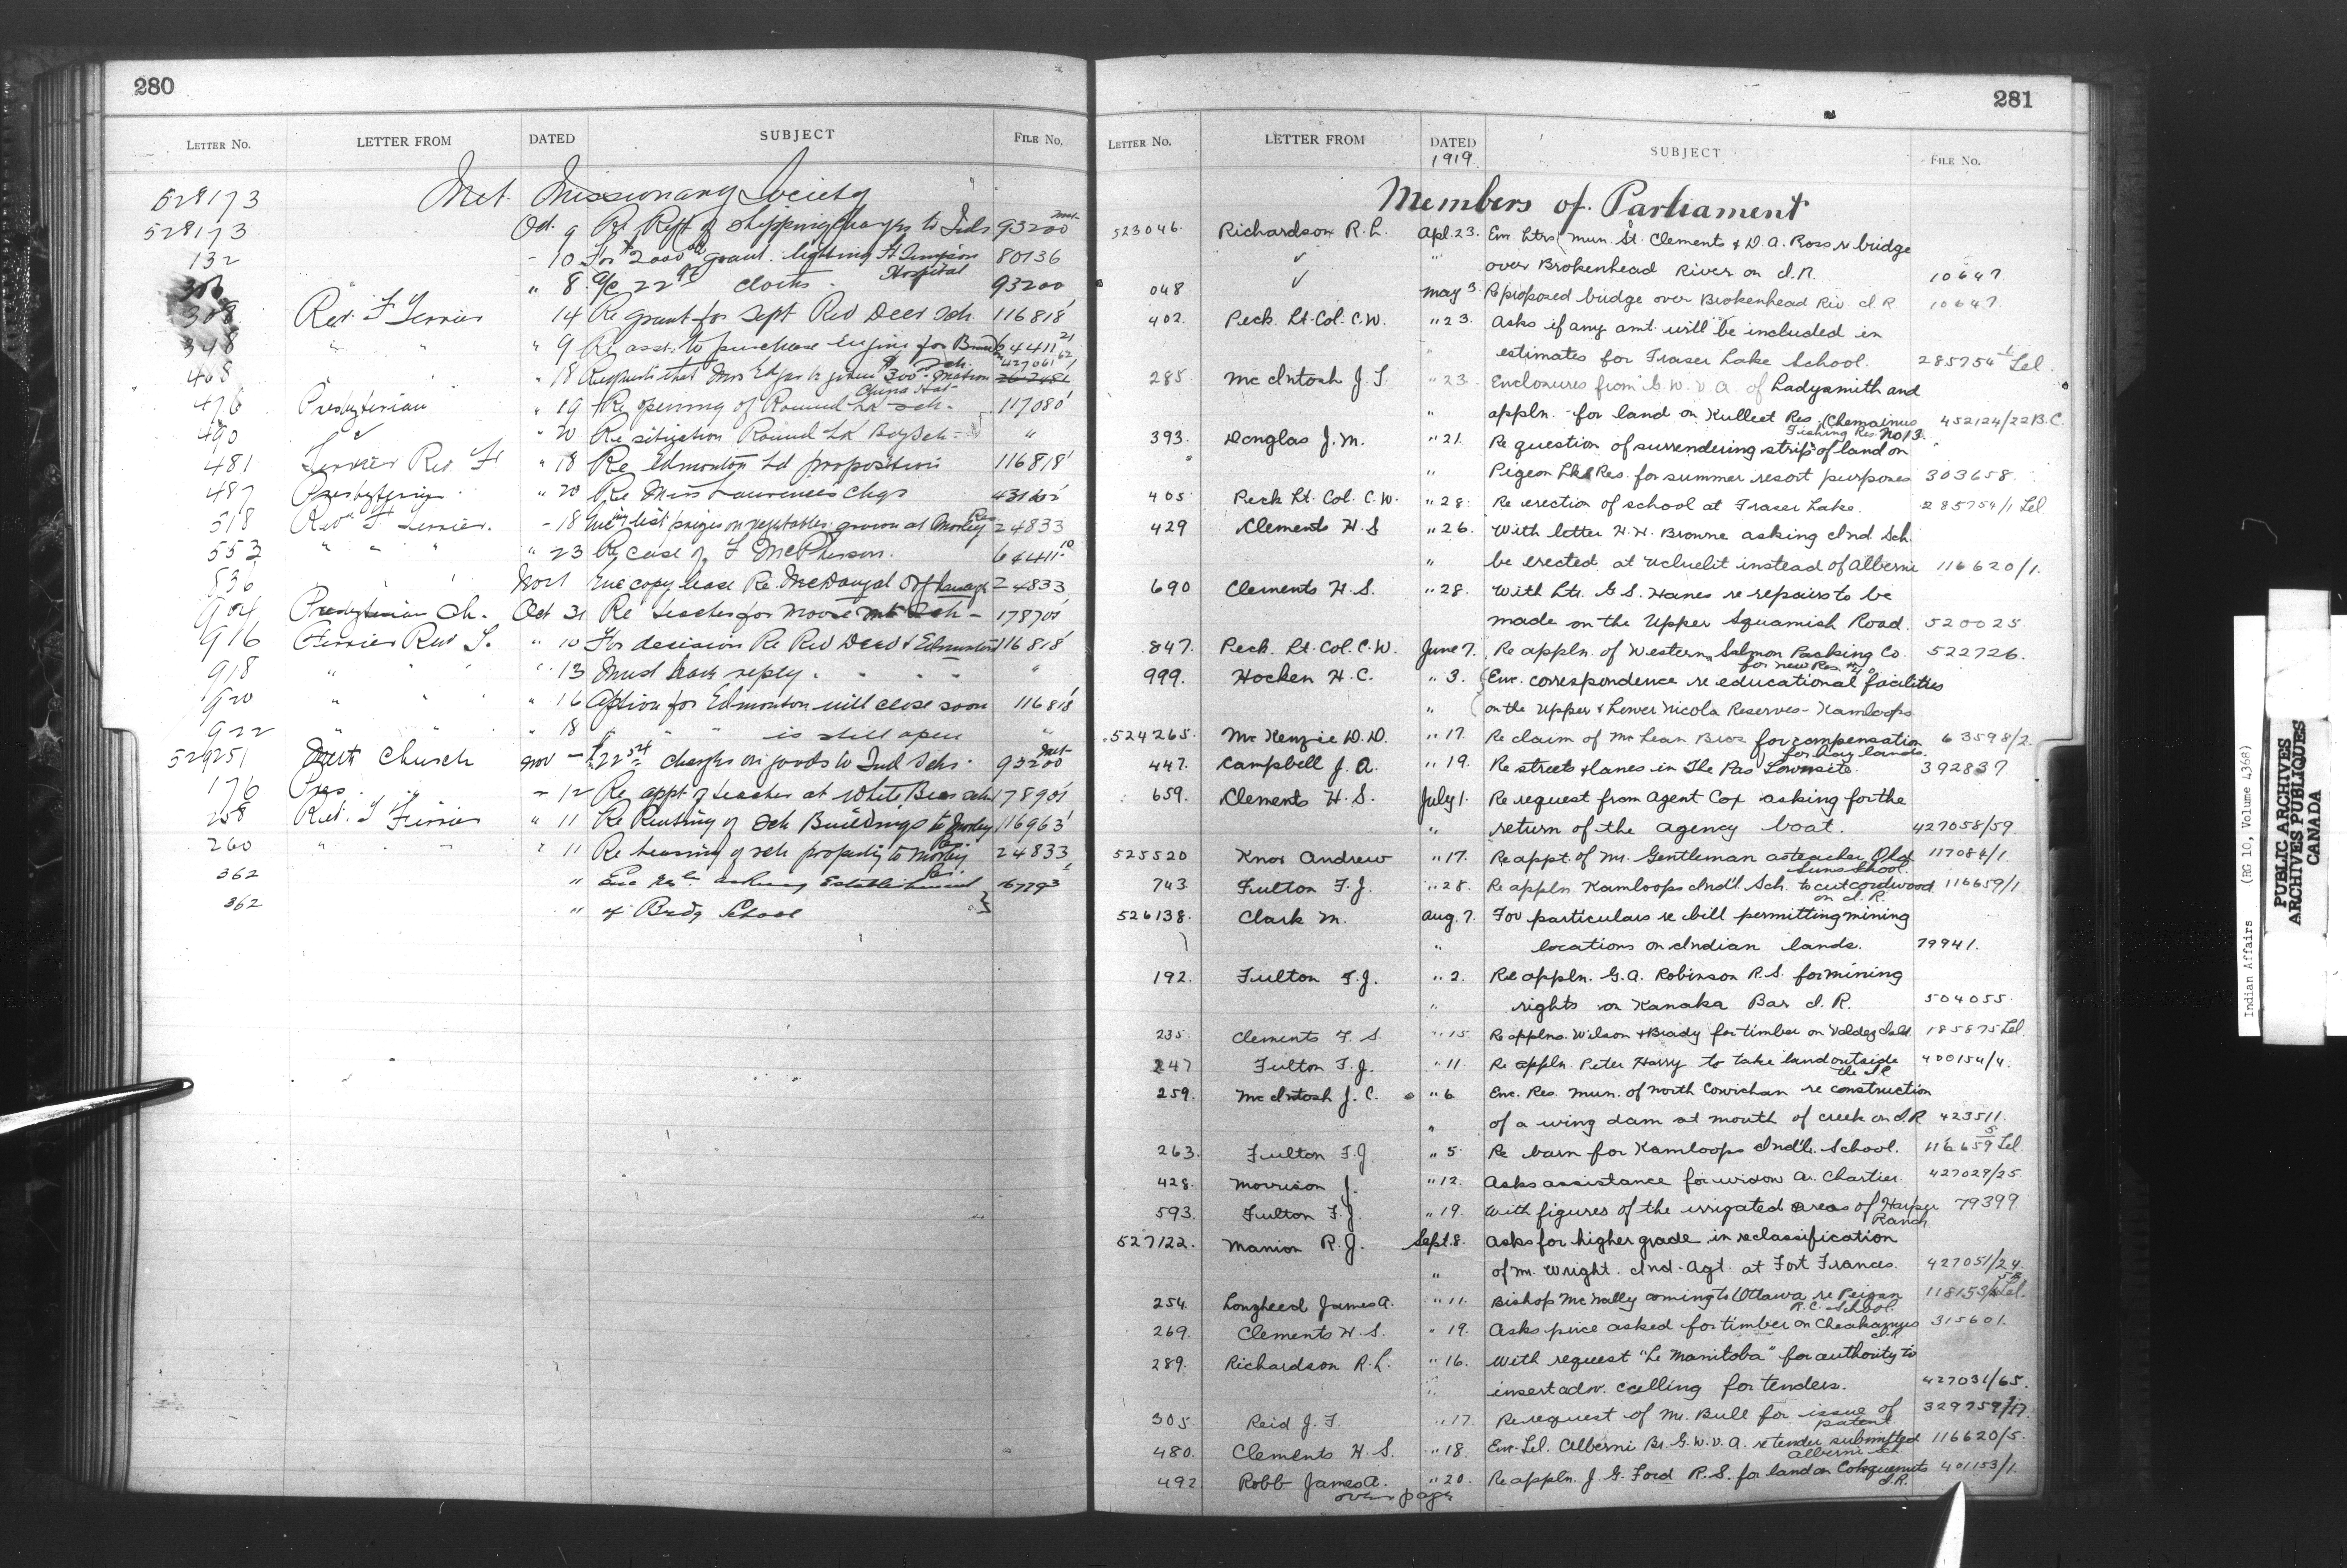 280
LETTER No. LETTER FROM DATED SUBJECT FILE No.
Met. Missionary Society
528173
528173 Oct. 9 Re Reft of shipping charges to Inds 93200
132 " 10 For $2000 00 grant lighting Ft Simpson Hospital 80136
" 8 22 cloths 93200
308 Rev. F Ferrier 14 Re grant for Sept Red Deer Sch. 116818
348 " " " 9 Re asst. to purchase Engine for 64411
468 " 18 Requests that Mrs be given $300
476 Presbyterian " 19 Re opening of Round Lk Sch. 117080
490 " 20 Re sitigation Round Lk Bdg Sch. "
481 Ferrier Rev. F " 18 Re Edmonton Ld proposition 116818
487 Presbyterian " 20 Re Miss Laurence's chgs
518 Rev. F Ferrier. " 18 list prizes on vegetables grown at Morley Res 24833
553 " " " " 23 Re case of F McPherson. 64411 10
536 Nov 1 Enc copy lease Re McDougal 24833
904 Presbyterian Ch. Oct 31 Re teacher for Moose Mt Sch
916 Ferrier Rev F. " 10 For decision Re Red Deer & Edmonton 116818
918 " " 13 Must have reply. "
920 " " " 16 Option for Edmonton will close soon 116818
922 " 18 " " " is still open "
529251 Meth Church Nov – $22 charges on goods to Ind Schs. 93200
176 Pres. " 12 Re appt of teacher at White Bear sch
258 Rev. F Ferrier " 11 Re Renting of Sch Buildings to Morley 116963
260 " " " 11 Re Leasing of sch property to Morley Res. 24833
362 " asking Establishment
362 " of Brdg School
281
LETTER No. LETTER FROM DATED 1919 SUBJECT FILE No.
Members of Parliament
523046. Richardson R. L. Apl. 23. Enc. Ltrs (Mun. St. Clements & D. A. Ross re bridge
" over Brokenhead River on I.R. 10647
048 May 3 Re proposed bridge over Brokenhead Riv. I R 10647
402. Peck. Lt. Col. C.W. " 23. Asks if any amt. will be included in
" estimates for Fraser Lake School. 285754 1 Lel
285. McIntosh J. S. " 23 Enclosures from G. W. V. A. of Ladysmith and
" appln. for land on Kulleet Res. (Chemainus Fishing Res. No 13. 452124/22 B.C.
393. Douglas J. M. " 21. Re question of surrendering strip of land on
" Pigeon Lk Res. for summer resort purposes 303658.
405. Peck Lt. Col. C. W. " 28. Re erection of school at Fraser Lake. 285754/1 Lel
429 Clements H. S " 26. With letter H. H. Browne asking Ind Sch.
" be erected at Ucluelit instead of Alberni 116620/1.
690 Clements H. S. " 28. With Ltr. G. S. Hanes re repairs to be
made on the Upper Squamish Road. 520025.
847. Peck. Lt. Col. C. W. June 7. Re appln. of Western Salmon Packing Co. for new Res. 522726.
999. Hocken H. C. " 3. Enc. correspondence re educational facilities
" on the Upper & Lower Nicola Reserves - Kamloops
524265. McKenzie D. D. " 17. Re claim of McLean Bros for compensation for hay lands. 63598/2.
447. Campbell J. A. " 19. Re streets & lanes in The Pas Townsite. 392837.
659. Clements H. S. July 1. Re request from Agent Cox asking for the
" return of the agency boat. 427058/59
525520 Knox Andrew " 17. Re appt. of Mr. Gentleman as teacher Old Suns School. 117084/1.
743 Fulton F. J. " 28. Re appln Kamloops Ind'l. Sch. to cut cordwood on I.R. 116659/1
526138. Clark M. Aug. 7. For particulars re bill permitting mining
" locations on Indian lands. 79941.
192. Fulton F. J. " 2. Re appln. G. A. Robinson R. S. for mining
" rights on Kanaka Bar I. R. 504055.
235. Clements F. S. " 15 Re applns. Wilson & Brady for timber on Valdez Isld. 185875 Lel.
247 Fulton F. J. " 11. Re appln. Peter Harry to take land outside the I R 400154/4.
259. McIntosh J. C. " 6 Enc. Res. Mun. of North Cowichan re construction
" of a wing dam at mouth of creek on I.R 423511.
263. Fulton F. J " 5 Re barn for Kamloops Ind'l. School. 116659 5 Lel
428. Morrison J. " 12. Asks assistance for widow A. Chartier. 427029/25
593. Fulton F. J. " 19. With figures of the irrigated areas of Harper Ranch 79399
527122. Manion R. J. Sept. 8. Asks for higher grade in reclassification
" of Mr. Wright. Ind. Agt. at Fort Frances. 427051/24.
254. Lougheed James A. " 11. Bishop McNally coming to Ottawa re Peigan R. C. School. 118153 Lel.
269. Clements H. S. " 19. Asks price asked for timber on Cheakamus I.R. 315601.
289. Richardson R. L. " 16. With request "Le Manitoba" for authority to
" insert adv. calling for tenders. 427031/65.
305. Reid J. F. " 17. Re request of Mr. Bull for issue of patent 329759/17
480. Clements H. S. " 18. Enc. Lel. Alberni Br. G. W. V. A. re tender submitted Alberni sch. 116620/5.
492 Robb James A. " 20. Re appln. J. G. Ford R. S. for land on Coloquenuts I.R. 401153/1.
over page
Indian Affairs (RG 10, Volume 4368)
PUBLIC ARCHIVES
ARCHIVES PUBLIQUES
CANADA